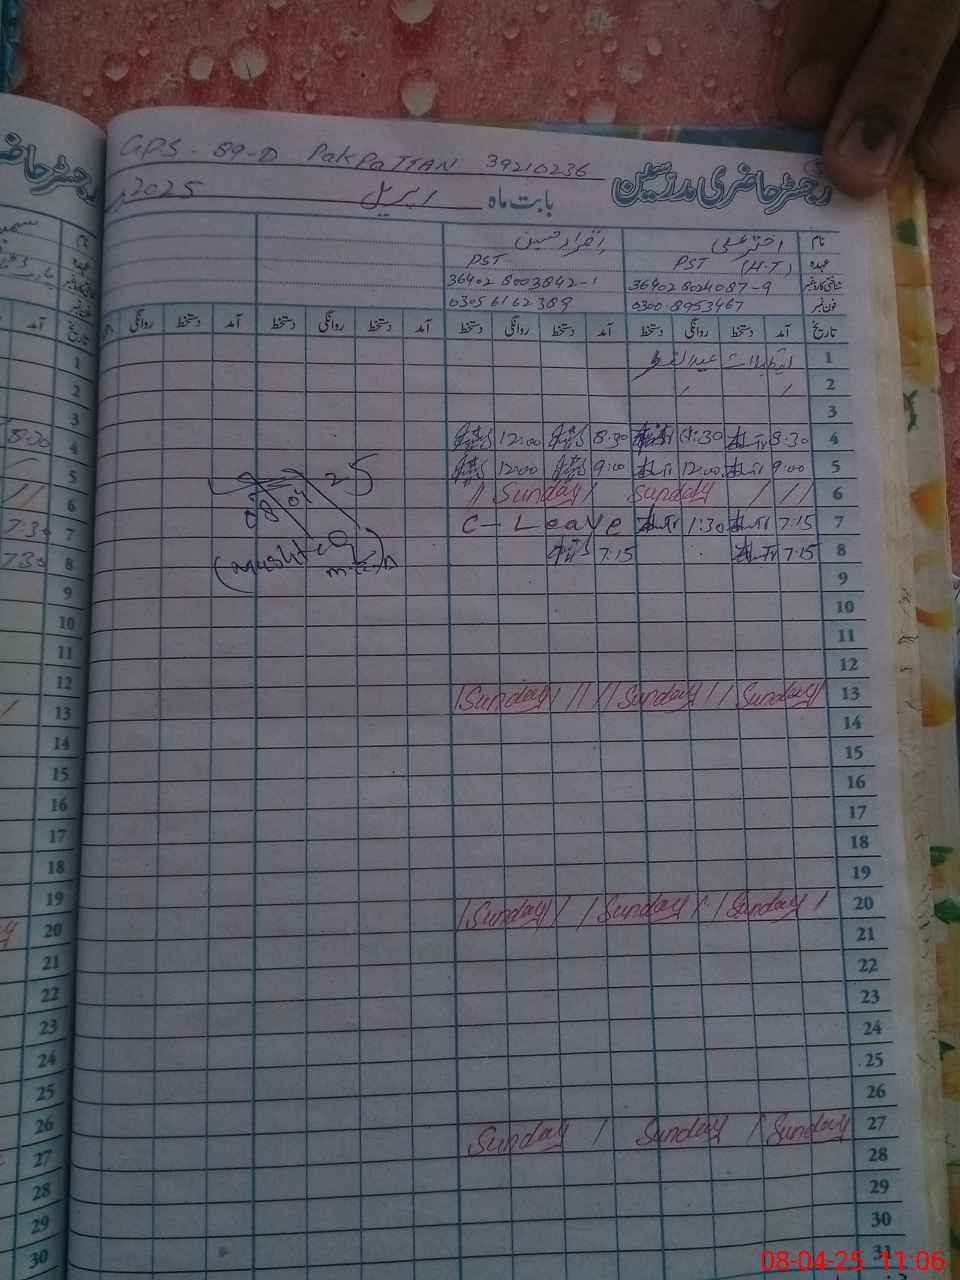 GPS - 89-D PakPaTTAN 39210236
رجسٹر حاضری مدرسین
بابت ماہ اپریل 2025
نام اختر علی اقرار حسین
عہدہ PST (H-T) PST
شناختی کارڈ نمبر 36402 8024087-9 36402 8003842-1
فون نمبر 0300-8953467 0305 6162389
تاریخ آمد دستخط روانگی دستخط آمد دستخط روانگی دستخط آمد دستخط روانگی دستخط آمد دستخط روانگی
1
2
3
4 8:30 1:30 8:30 12:00
5 9:00 12:00 9:00 12:00
6 Sunday Sunday
7 7:15 1:30 C-Leave
8 7:15 7:15
9
10
11
12
13 Sunday Sunday Sunday
14
15
16
17
18
19
20 Sunday Sunday Sunday
21
22
23
24
25
26
27 Sunday Sunday Sunday
28
29
30
31
08 04 25
آمد تاریخ
1
2
3
8:30 4
5
6
7:30 7
7:30 8
9
10
11
12
13
14
15
16
17
18
19
20
21
22
23
24
25
26
27
28
29
30
08-04-25 11:06